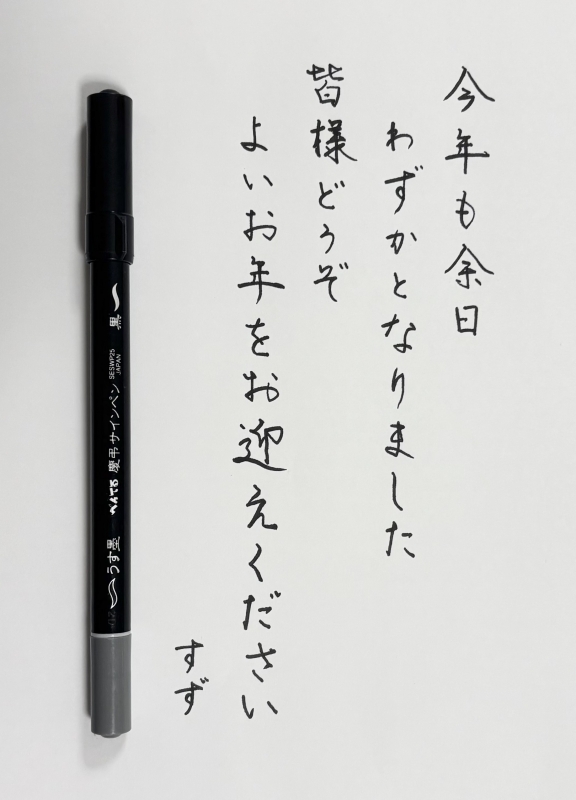 今年も余日
わずかとなりました
皆様どうぞ
よいお年をお迎えください
すず
黒
慶弔 サインペン SESWP25 JAPAN
うす墨